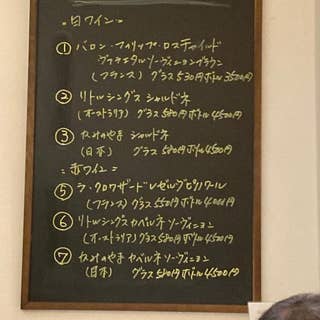 ・白ワイン・
① バロン・フィリップ・ロスチャイルド
ヴァラエタルソーヴィニヨンブラン
(フランス) グラス530円 ボトル3500円
② リトルシングス シャルドネ
(オーストラリア) グラス580円 ボトル4500円
③ なみのやま シャルドネ
(日本) グラス580円 ボトル4500円
赤ワイン
⑤ ラ・クロワザードレゼルブピノワール
(フランス) グラス550円 ボトル4000円
⑥ リトルシングスカベルネソーヴィニヨン
(オーストラリア) グラス580円 ボトル4500円
⑦ なみのやま カベルネソーヴィニヨン
(日本) グラス580円 ボトル4500円